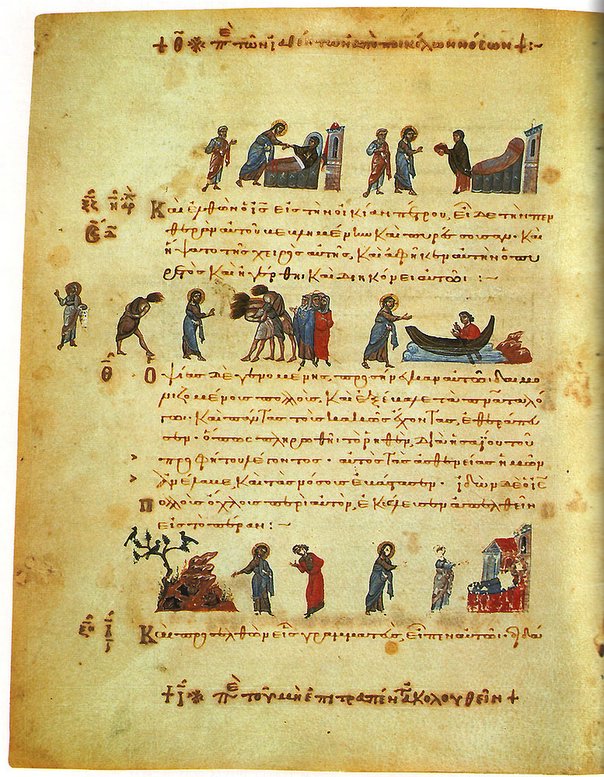 + Θ * Πε τῶν ἰαθέντων ἀπὸ ποικίλων νόσων + :~
Καὶ ἐλθὼν ὁ ις εἰς τὴν οἰκίαν πέτρου, εἶδε τὴν πεν
θερὰν αὐτοῦ βεβλημένην καὶ πυρέσσουσαν· καὶ
ἥψατο τῆς χειρὸς αὐτῆς, καὶ ἀφῆκεν αὐτὴν ὁ πυ
ρετὸς καὶ ἠγέρθη· καὶ διηκόνει αὐτῶι :~
Θ Ὀψίας δὲ γενομένης, προσήνεγκαν αὐτῶι δαιμο
νιζομένους πολλούς, καὶ ἐξέβαλε τὰ πνατα λό
γωι· καὶ πάντας τοὺς κακῶς ἔχοντας, ἐθεράπευ
σεν· ὅπως πληρωθῆι τὸ ρηθὲν, διὰ ἠσαΐου τοῦ
προφήτου λέγοντος· αὐτὸς τὰς ἀσθενείας ἡμῶν
ἀνέλαβε, καὶ τὰς νόσους ἐβάστασεν· ἰδὼν δὲ ὁ ις
Πολλοὺς ὄχλους περὶ αὐτὸν, ἐκέλευσεν ἀπελθεῖν
εἰς τὸ πέραν :~
Καὶ προσελθὼν εἷς γραμματεὺς, εἶπεν αὐτῶι· διδά
+ Ι * Πε τοῦ μὴ ἐπιτραπέντ ἀκολουθεῖν +